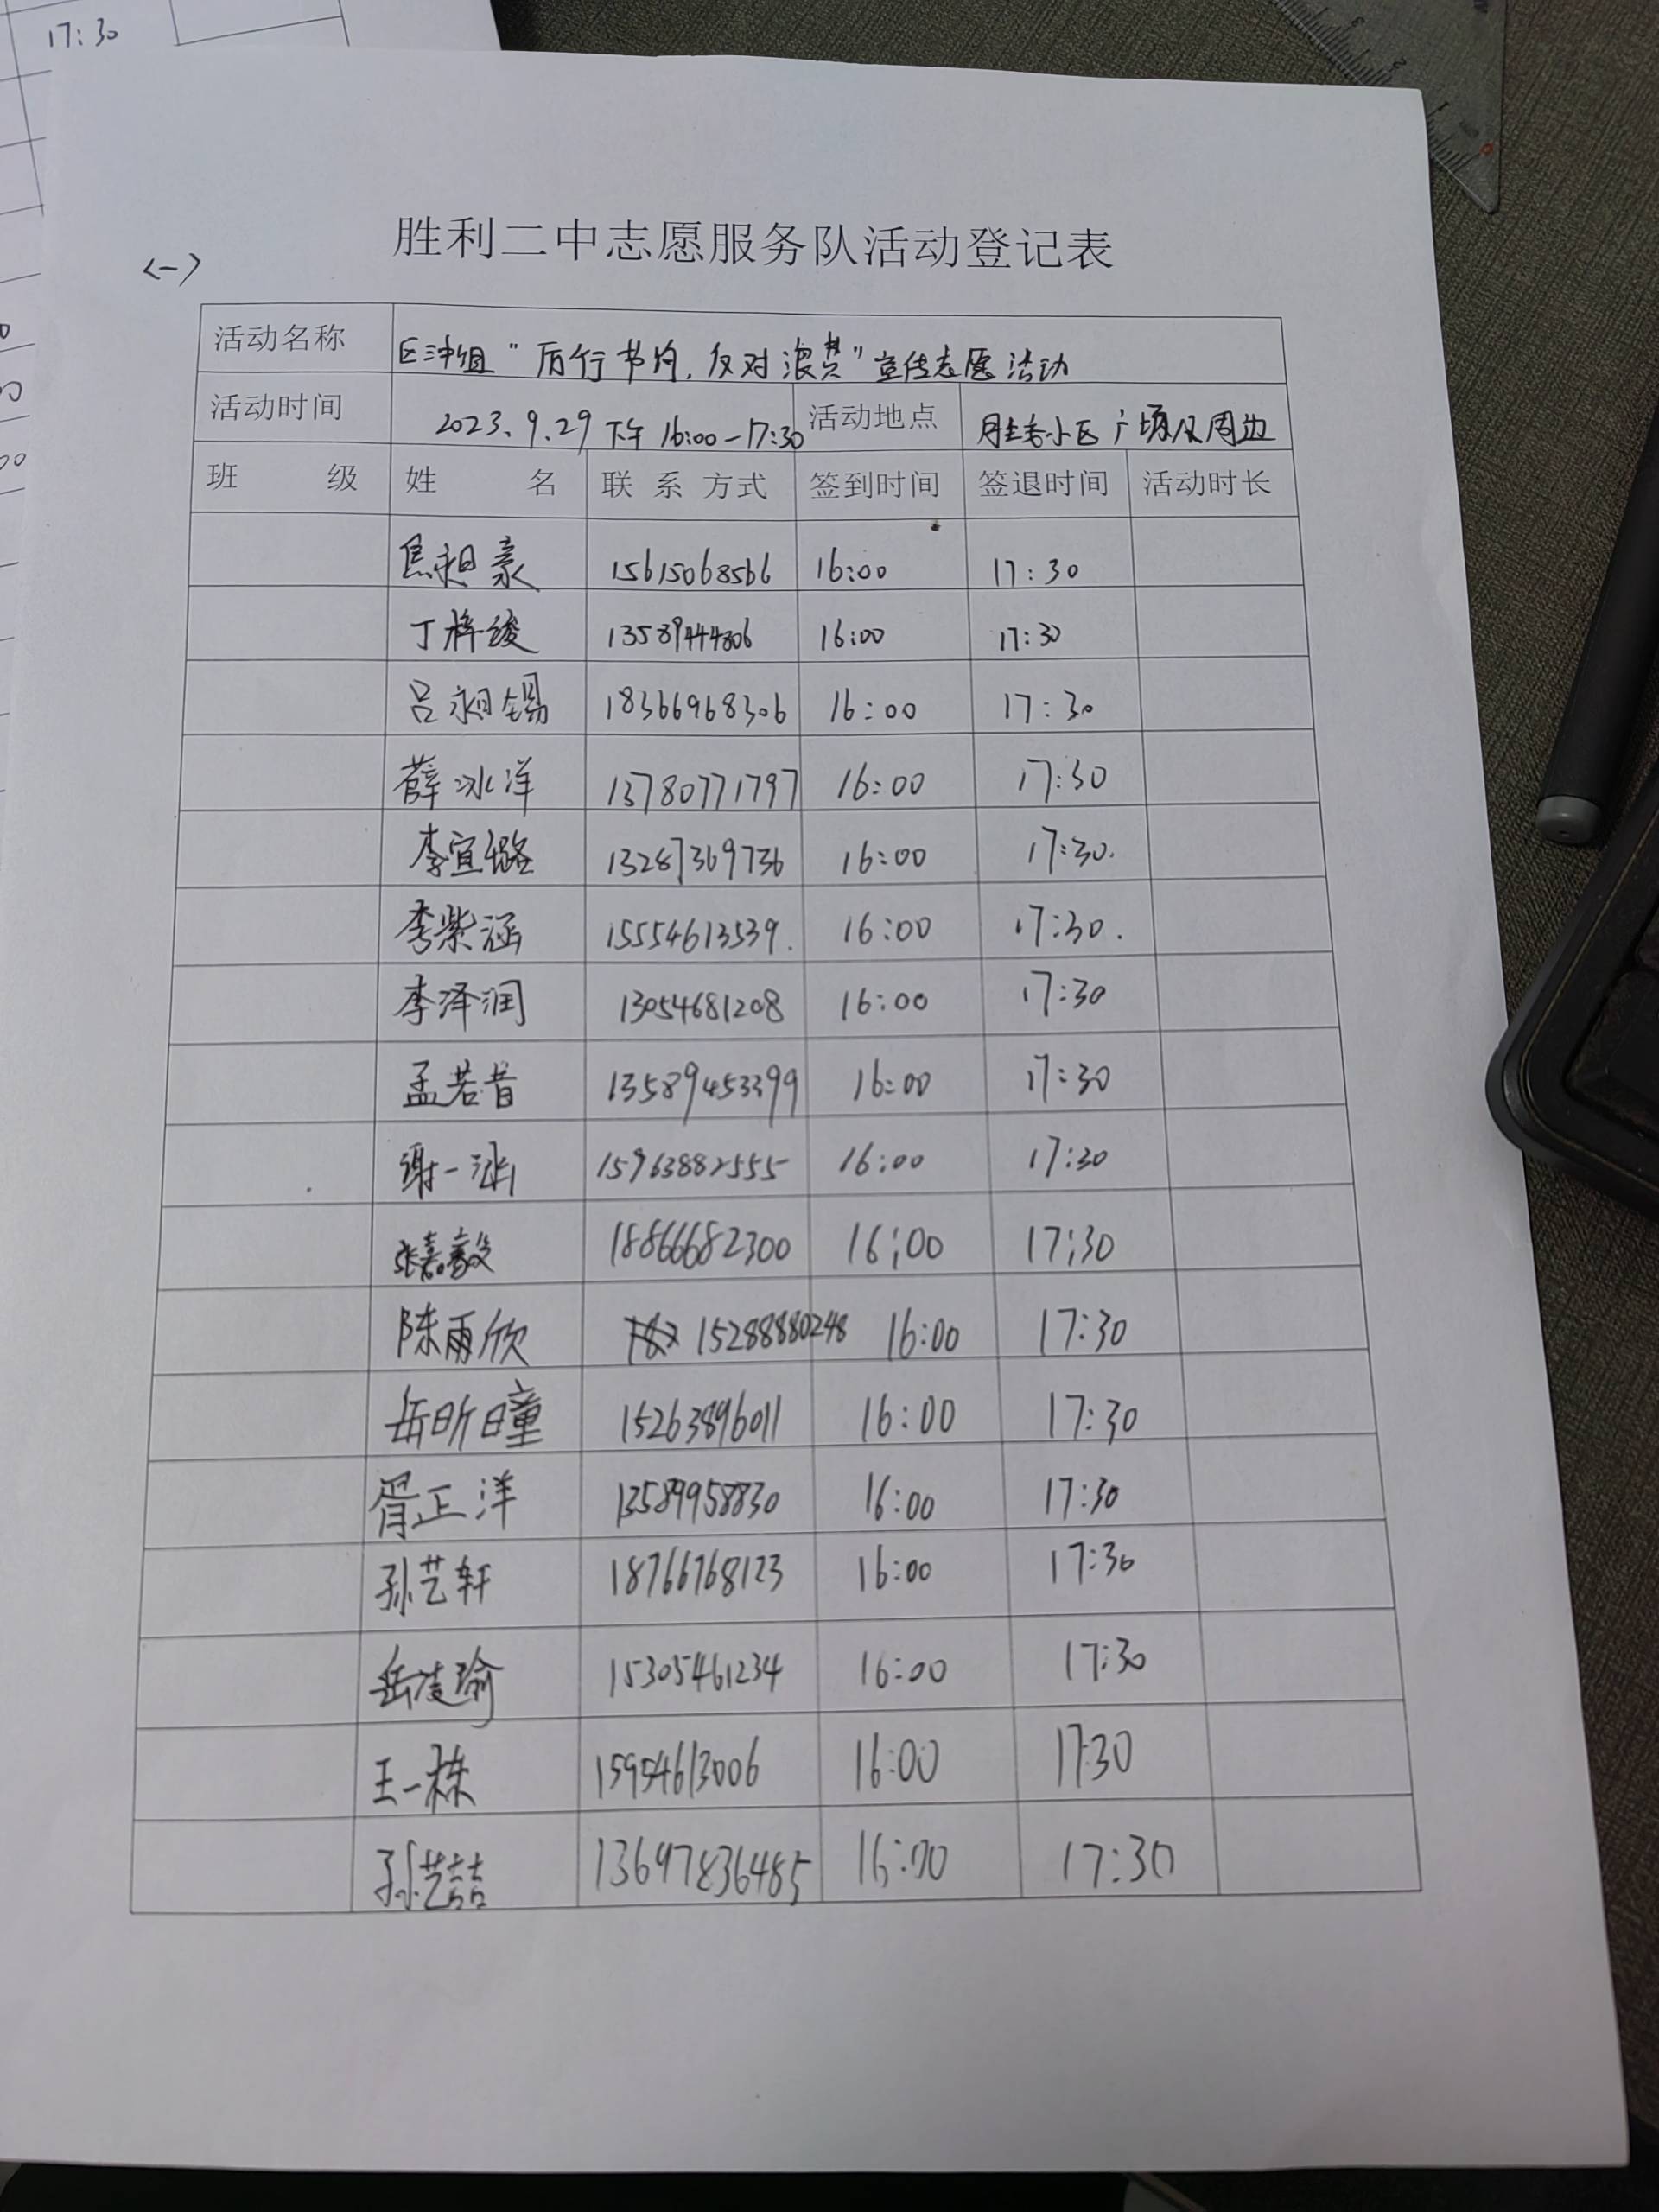 17:30
胜利二中志愿服务队活动登记表
<一>
活动名称 "厉行节约,反对浪费"宣传志愿活动
活动时间 2023.9.29 下午 16:00-17:30 活动地点 胜泰小区广场及周边
班 级 姓 名 联 系 方式 签到时间 签退时间 活动时长
焦昶豪 15615068566 16:00 17:30
丁梓绫 13589444806 16:00 17:30
吕昶锡 18366968306 16:00 17:30
薛冰洋 13780771797 16:00 17:30
李宜璐 13287369736 16:00 17:30.
李紫涵 15554613539. 16:00 17:30.
李泽润 13054681208 16:00 17:30
孟若昔 13589453399 16:00 17:30
谢一涵 15963882555 16:00 17:30
张嘉毅 18866682300 16:00 17:30
陈雨欣 15288880248 16:00 17:30
岳昕曈 15263896011 16:00 17:30
胥正洋 13589958830 16:00 17:30
孙艺轩 18766768123 16:00 17:30
岳凌瑜 15305461234 16:00 17:30
王一栋 15954613006 16:00 17:30
孙艺喆 13697836485 16:00 17:30